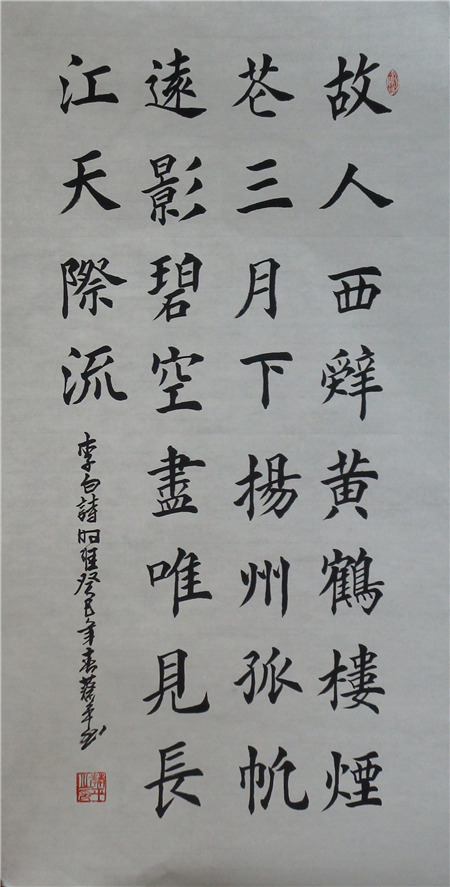 故人西辭黄鶴樓煙
花三月下揚州孤帆
遠影碧空盡唯見長
江天際流
李白詩癸巳年春